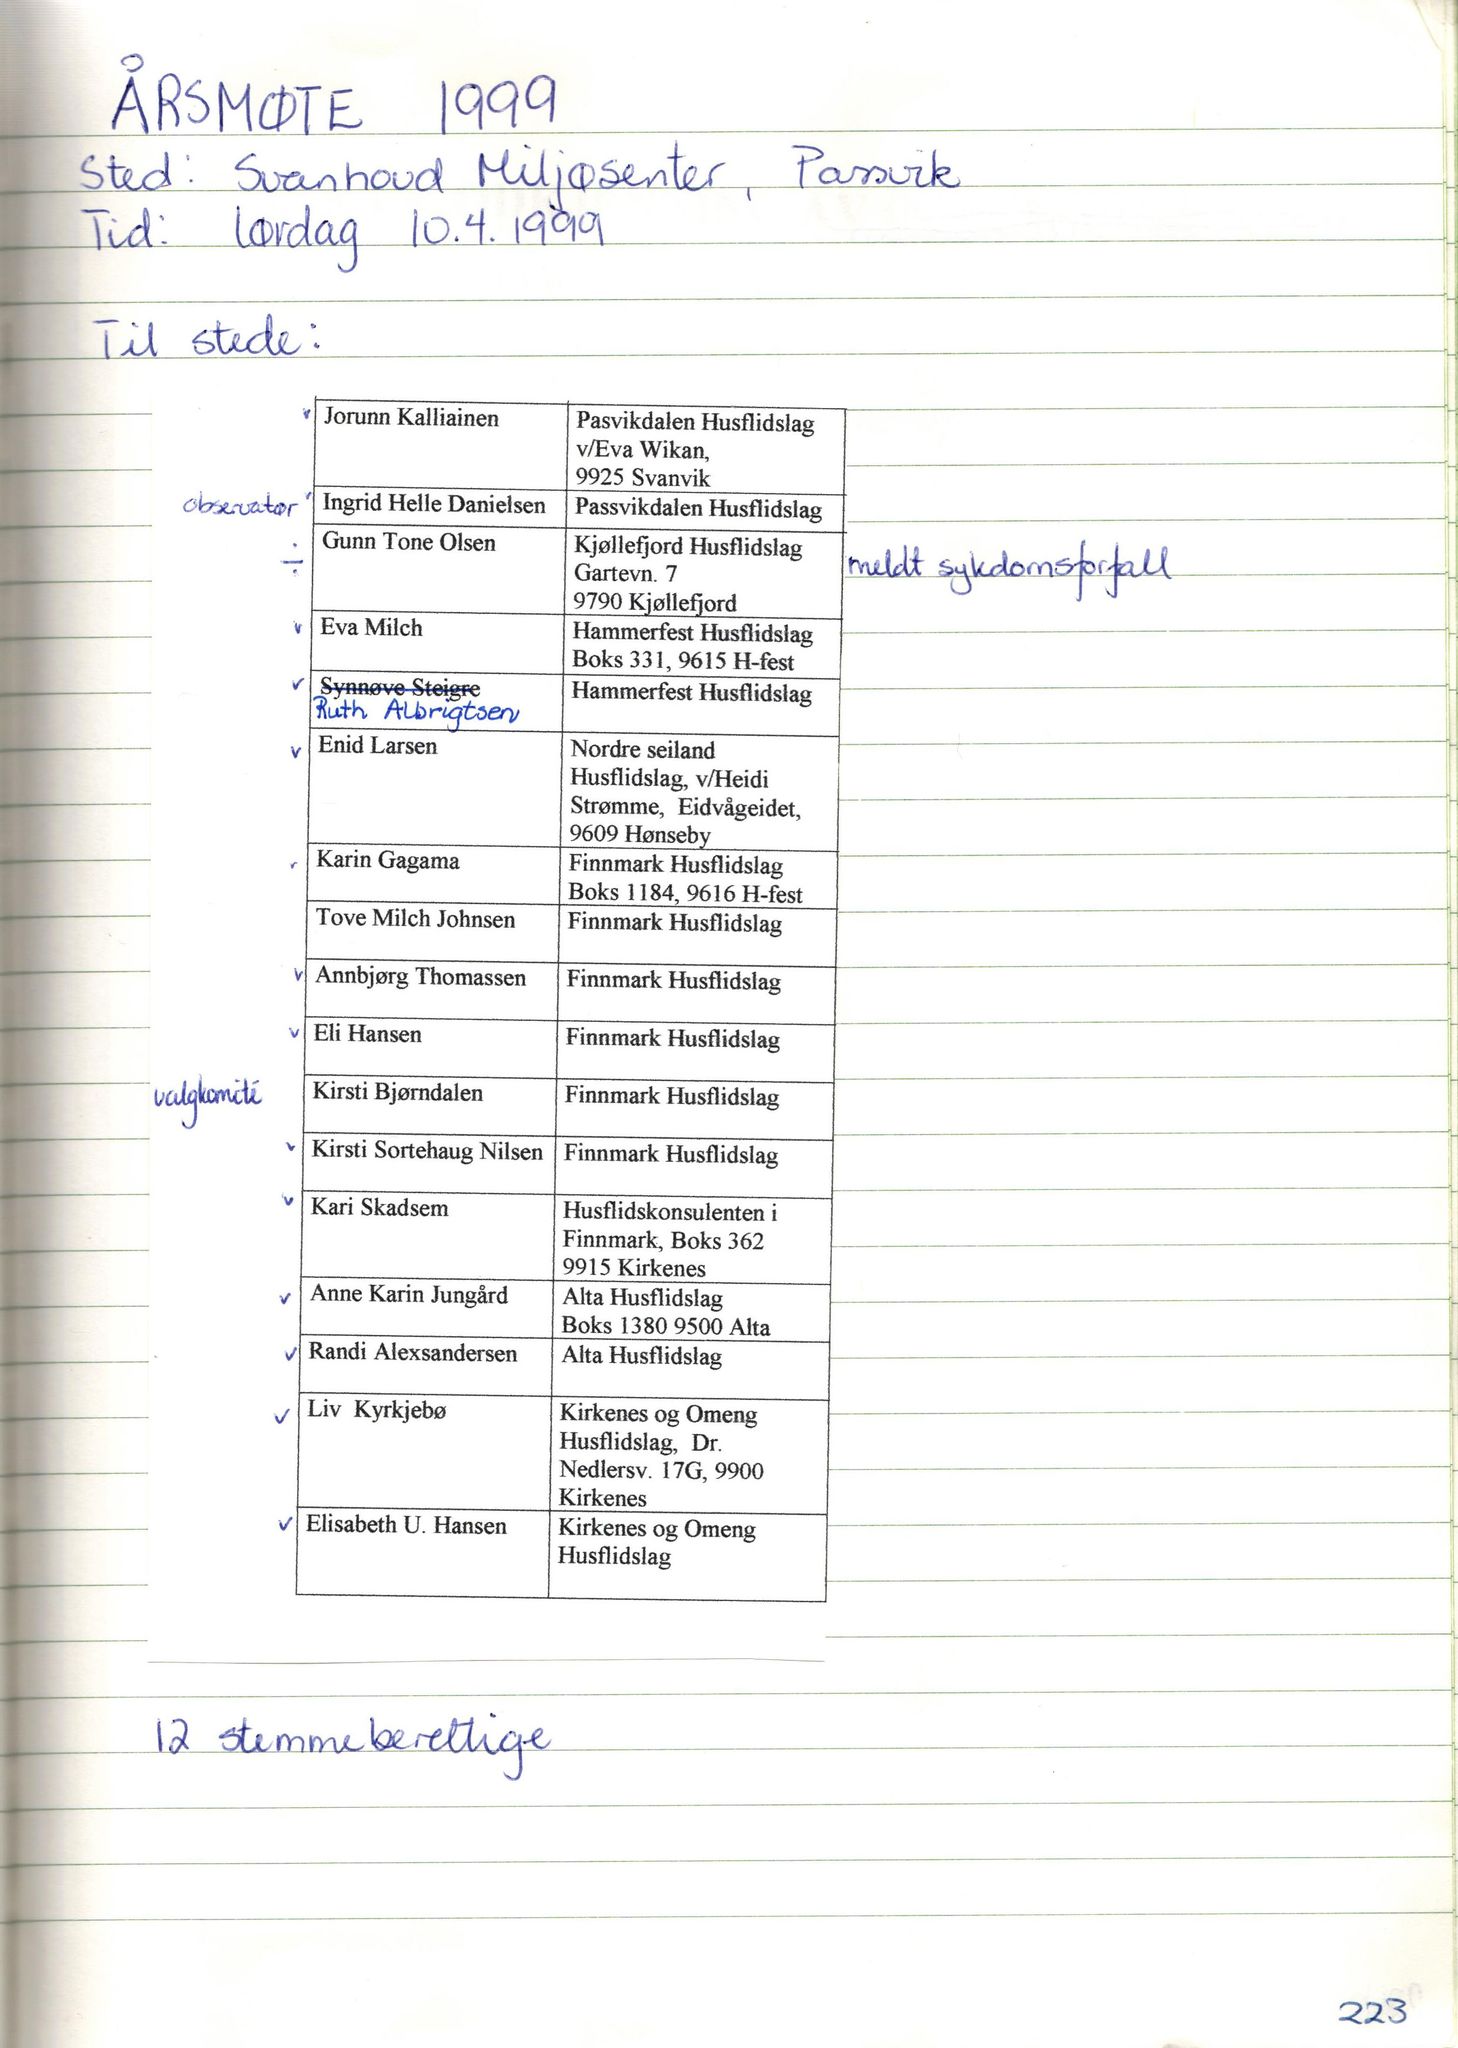 ÅRSMØTE 1999
Sted: Svanhovd Miljøsenter, Passvik
Tid: lørdag 10.4.1999
Til stede:
v Jorunn Kalliainen Pasvikdalen Husflidslag
v/Eva Wikan,
9925 Svanvik
observatør v Ingrid Helle Danielsen Passvikdalen Husflidslag
÷ Gunn Tone Olsen Kjøllefjord Husflidslag meldt sykdomsforfall
Gartevn. 7
9790 Kjøllefjord
v Eva Milch Hammerfest Husflidslag
Boks 331, 9615 H-fest
v Synnøve Steigre Hammerfest Husflidslag
Ruth Albrigtsen
v Enid Larsen Nordre seiland
Husflidslag, v/Heidi
Strømme, Eidvågeidet,
9609 Hønseby
v Karin Gagama Finnmark Husflidslag
Boks 1184, 9616 H-fest
Tove Milch Johnsen Finnmark Husflidslag
v Annbjørg Thomassen Finnmark Husflidslag
v Eli Hansen Finnmark Husflidslag
valgkomité Kirsti Bjørndalen Finnmark Husflidslag
v Kirsti Sortehaug Nilsen Finnmark Husflidslag
v Kari Skadsem Husflidskonsulenten i
Finnmark, Boks 362
9915 Kirkenes
v Anne Karin Jungård Alta Husflidslag
Boks 1380 9500 Alta
v Randi Alexsandersen Alta Husflidslag
v Liv Kyrkjebø Kirkenes og Omeng
Husflidslag, Dr.
Nedlersv. 17G, 9900
Kirkenes
v Elisabeth U. Hansen Kirkenes og Omeng
Husflidslag
12 stemmeberettige
223